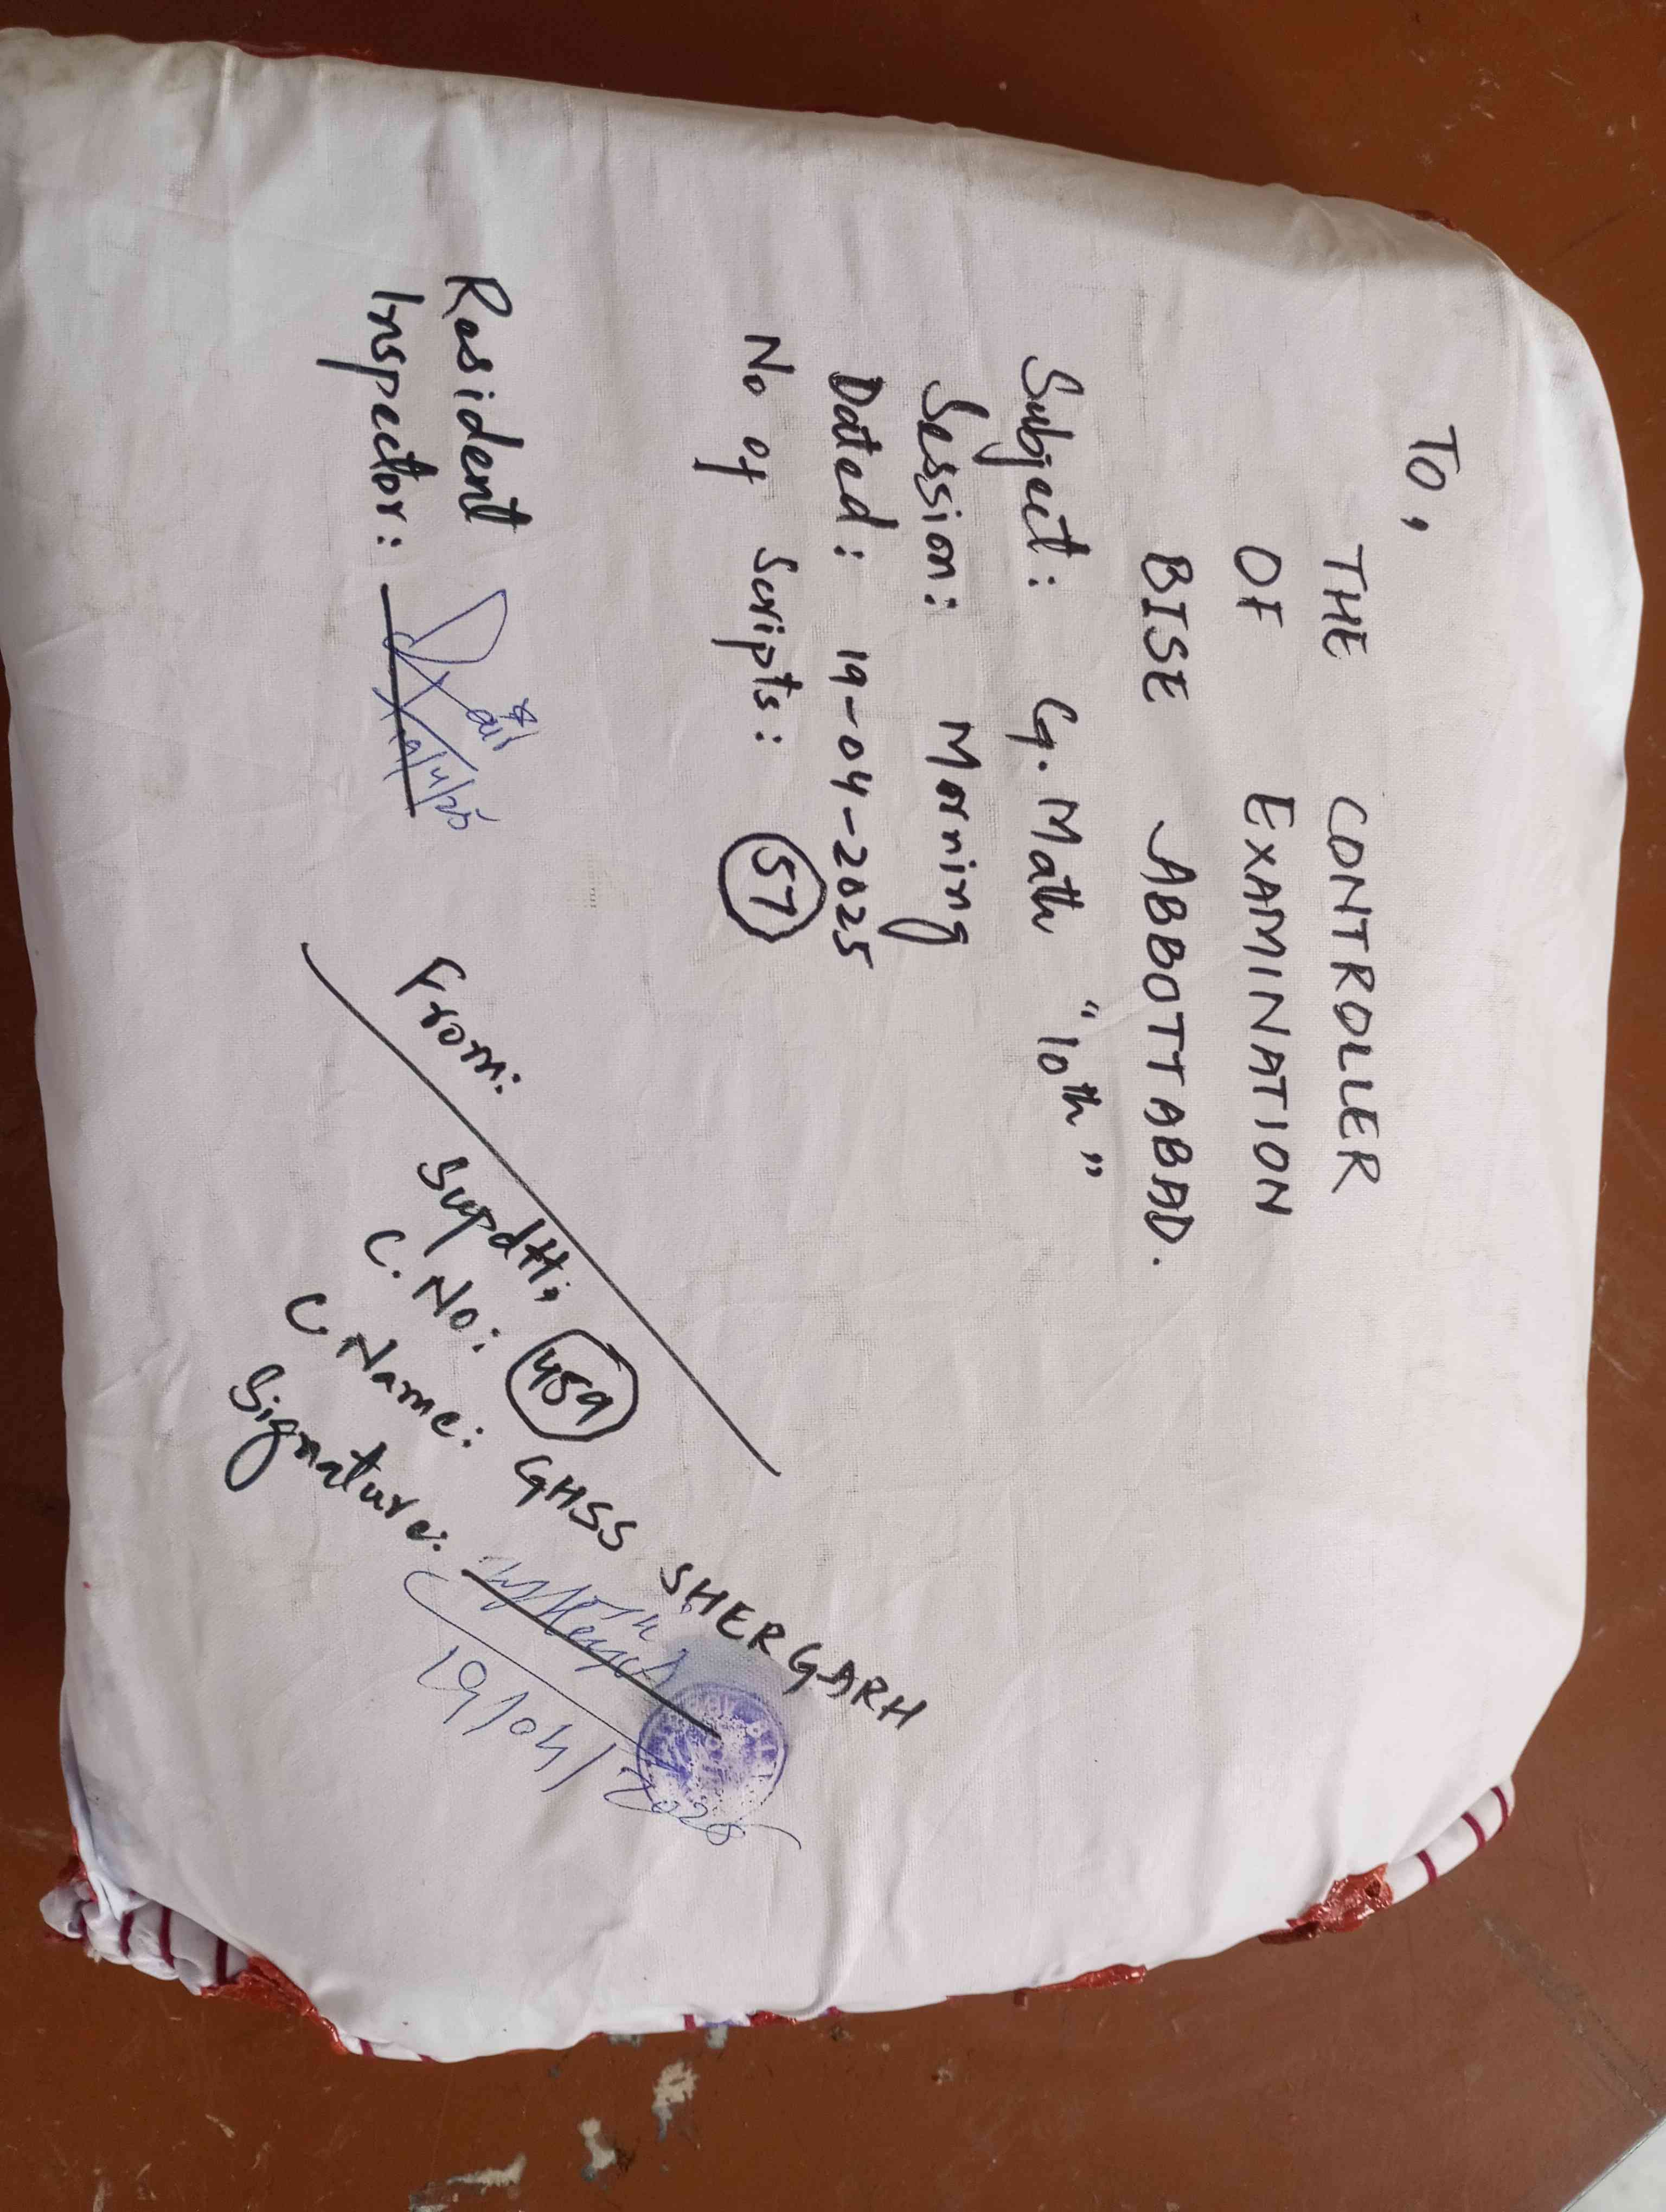 To,
THE CONTROLLER
OF EXAMINATION
BISE ABBOTTABAD.
Subject: G. Math "10th"
Session: Morning
Dated: 19-04-2025
No of Scripts: 57
Resident
Inspector:
19/4/25
From:
Supdtt;
C. No: 459
C. Name: GHSS SHERGARH
Signature:
19/04/2025